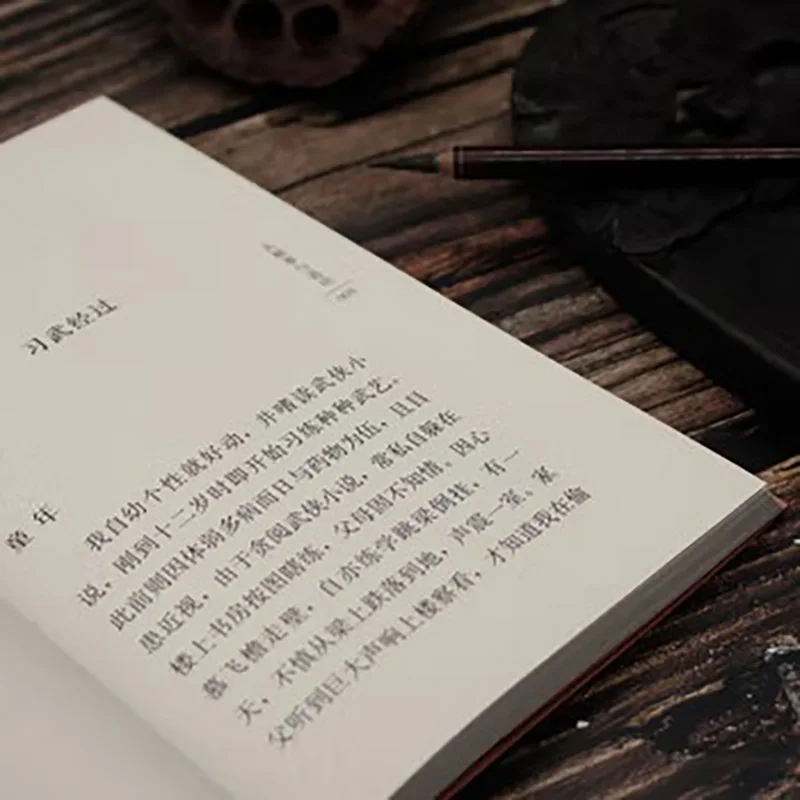 习武经过
童年
我自幼个性就好动，并嗜读武侠小
说，刚到十二岁时即开始习练种种武艺。
此前则因体弱多病而日与药物为伍，且目
患近视，由于贪阅武侠小说，常私自躲在
楼上书房按图瞎练，父母固不知情。因心
慕飞檐走壁，自亦练学跳梁倒挂，有一
天，不慎从梁上跌落到地，声震一室。家
父听到巨大声响上楼察看，才知道我在偷